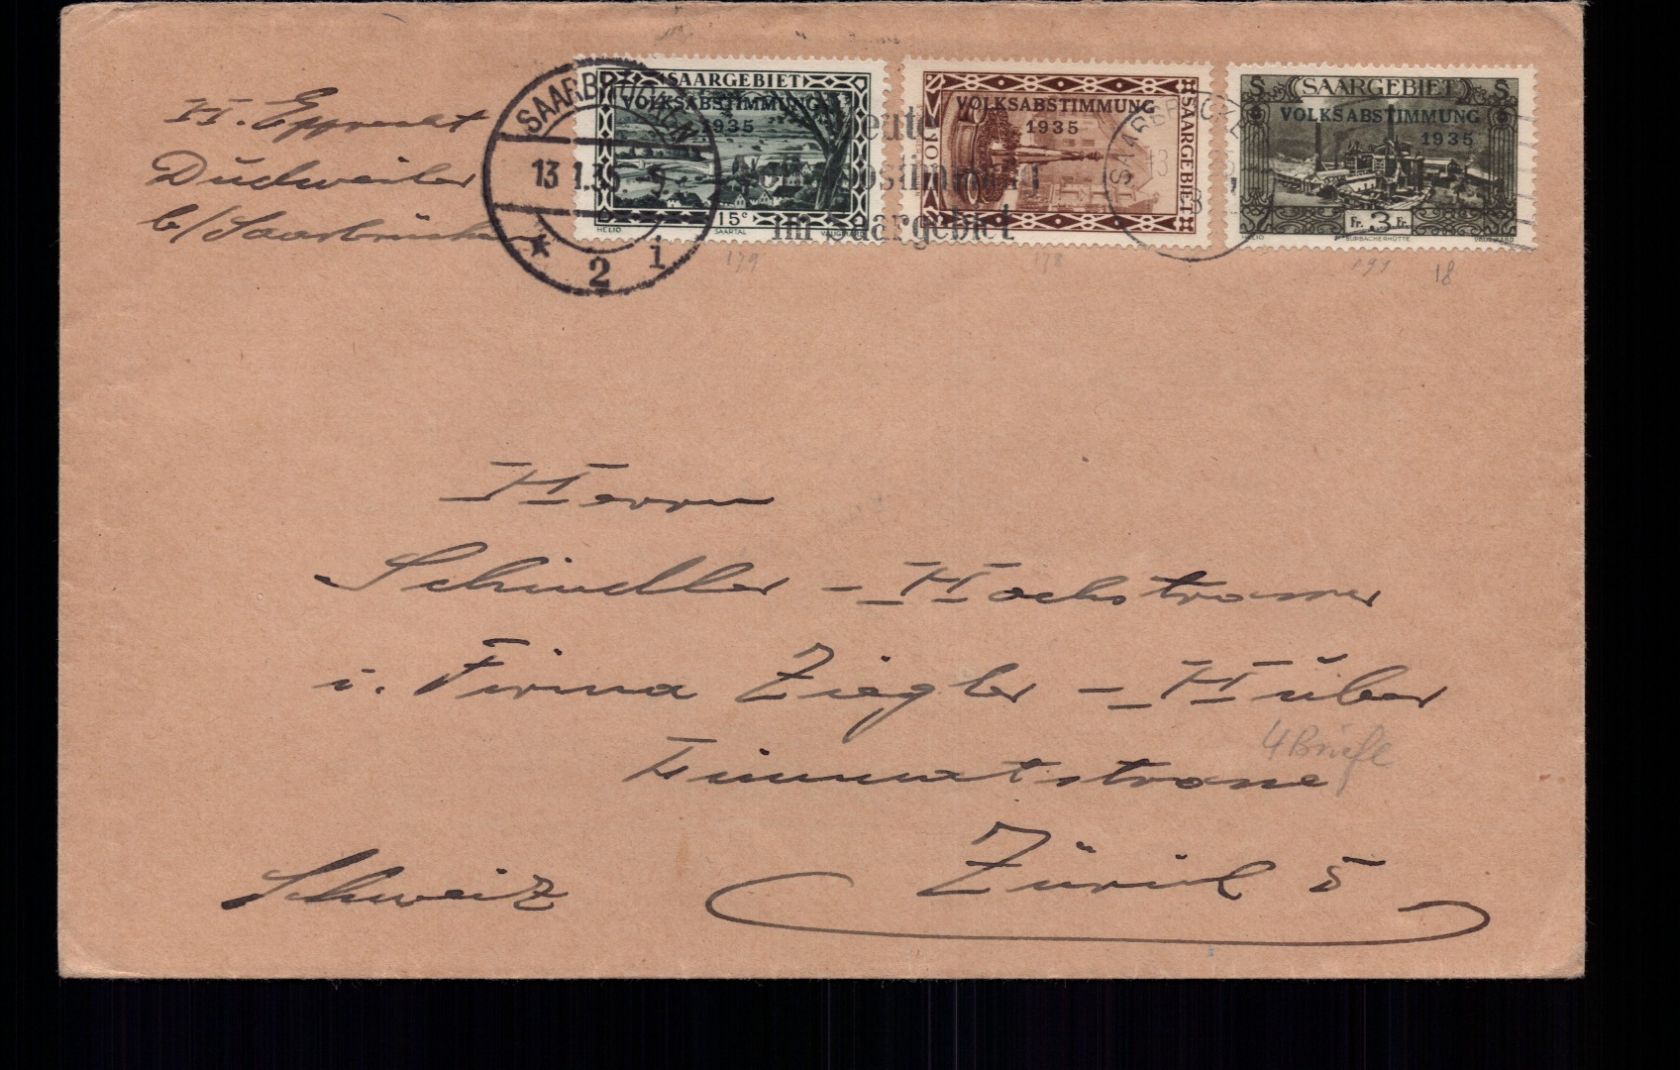 H. Epprecht
Dudweiler
b/Saarbrücken
SAARBRÜCKEN
13 1.35
* 2 i
SAARGEBIET
VOLKSABSTIMMUNG
1935
15c
HELIO SAARTAL
VOLKSABSTIMMUNG
1935
SAARGEBIET
10
SAARBRÜCKEN
13
S SAARGEBIET S
VOLKSABSTIMMUNG
1935
Fr. 3 Fr.
HELIO BURBACHERHÜTTE
im Saargebiet
179 178 18
Herrn
Schindler - Hochstrasser
i. Firma Ziegler - Huber
Limmatstrasse
4 Briefe
Zürich 5
Schweiz